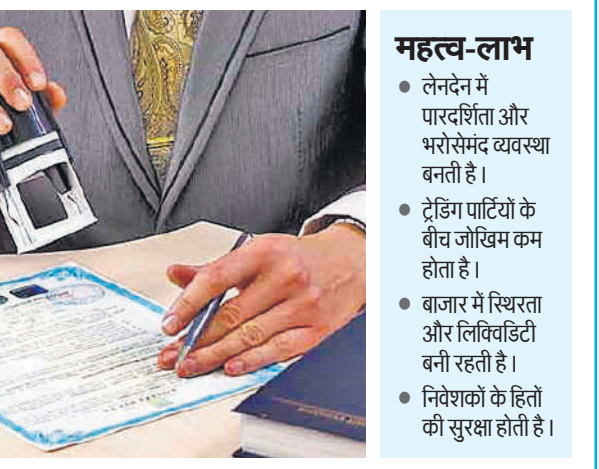 महत्व-लाभ
• लेनदेन में
पारदर्शिता और
भरोसेमंद व्यवस्था
बनती है।
• ट्रेडिंग पार्टियों के
बीच जोखिम कम
होता है।
• बाजार में स्थिरता
और लिक्विडिटी
बनी रहती है।
• निवेशकों के हितों
की सुरक्षा होती है।